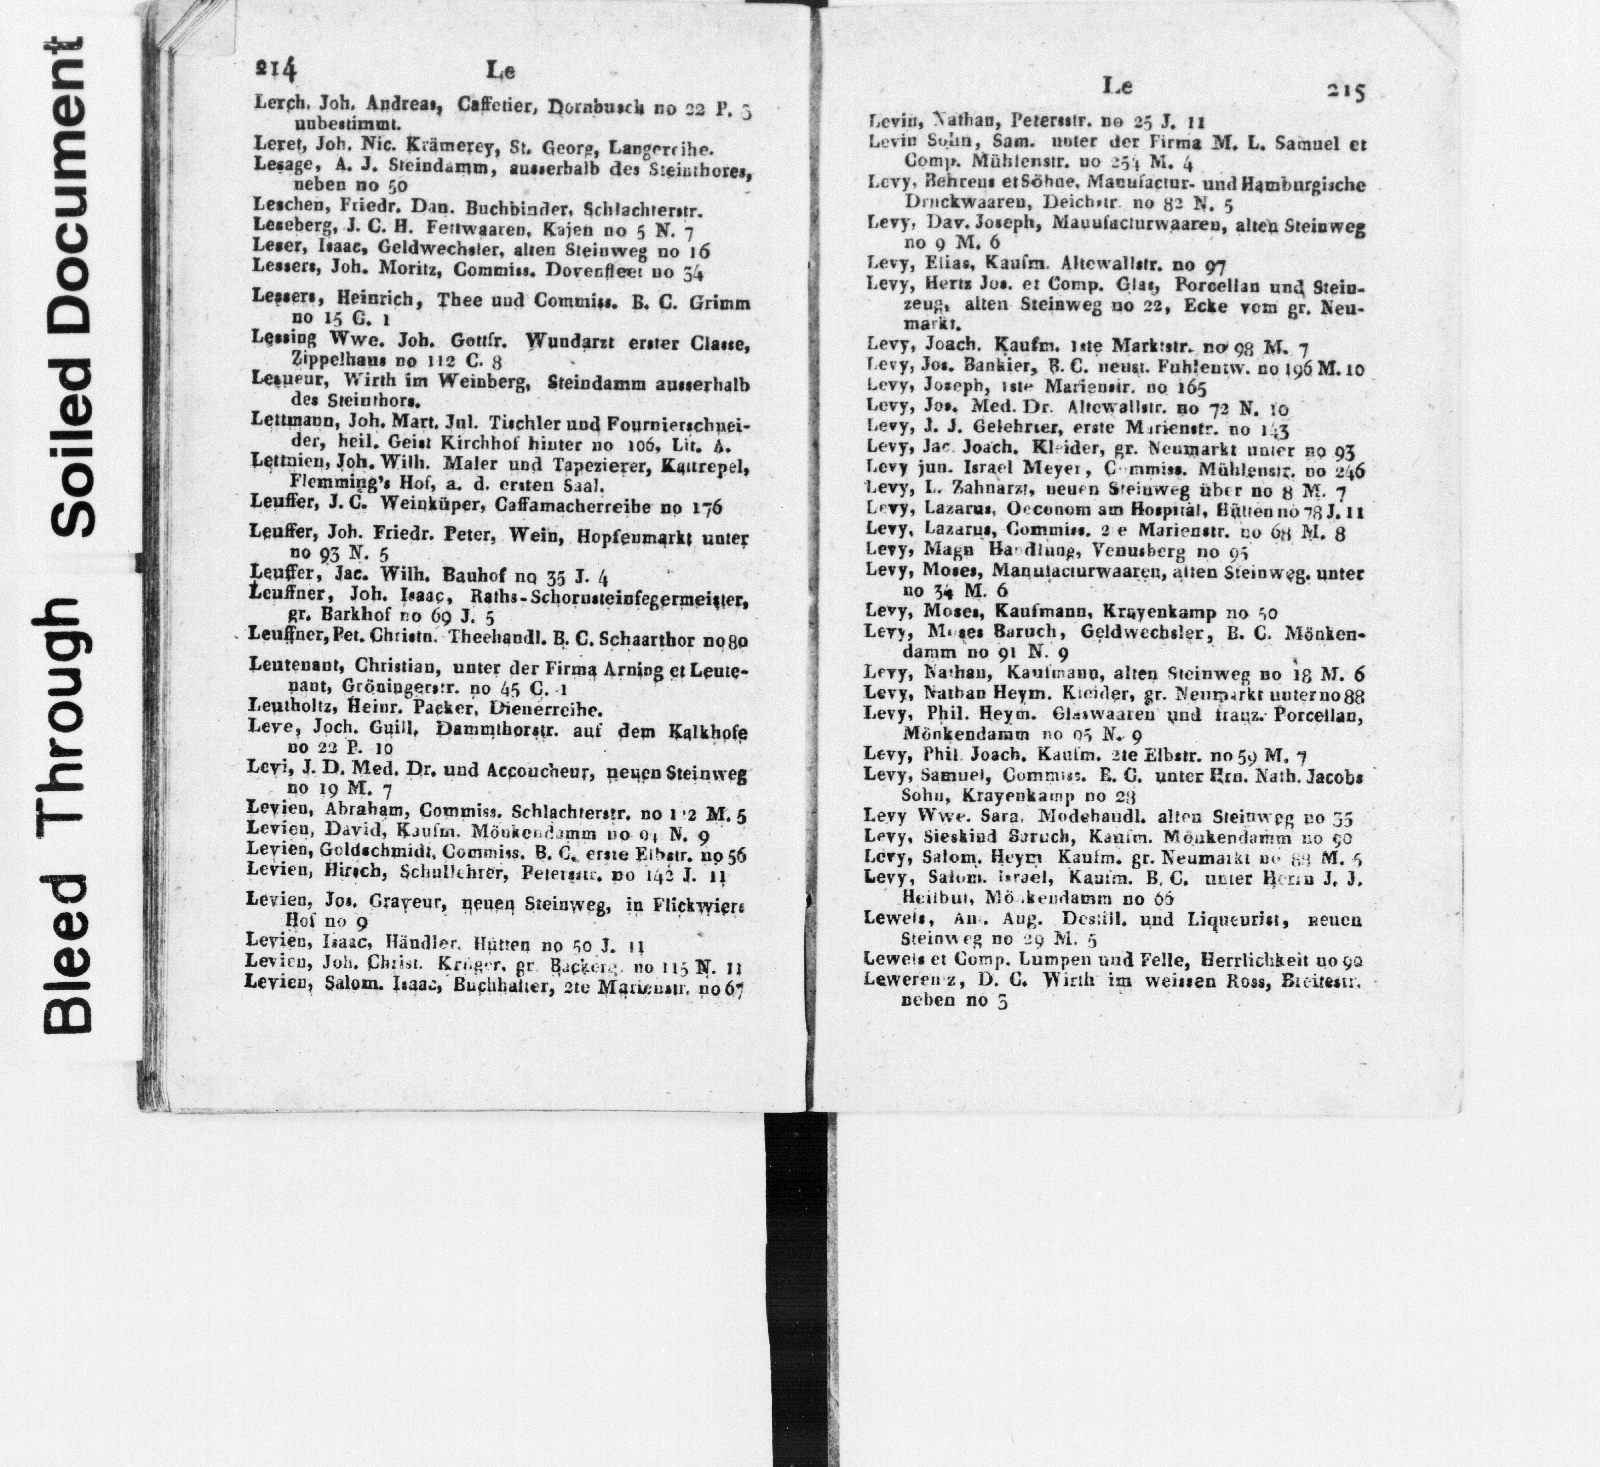 Bleed Through Soiled Document
214 Le
Lerch, Joh. Andreas, Caffetier, Dornbusch no 22 P. 3
unbestimmt.
Leret, Joh. Nic. Krämerey, St. Georg, Langereihe.
Lesage, A. J. Steindamm, ausserhalb des Steinthores,
neben no 50
Leschen, Friedr. Dan. Buchbinder, Schlachterstr.
Leseberg, J. C. H. Fettwaaren, Kajen no 5 N. 7
Leser, Isaac, Geldwechsler, alten Steinweg no 16
Lessers, Joh. Moritz, Commiss. Dovenfleet no 34
Lessers, Heinrich, Thee und Commiss. B. C. Grimm
no 15 G. 1
Lessing Wwe. Joh. Gottfr. Wundarzt erster Classe,
Zippelhaus no 112 C. 8
Lesueur, Wirth im Weinberg, Steindamm ausserhalb
des Steinthors.
Lettmann, Joh. Mart. Jul. Tischler und Fournierschnei-
der, heil. Geist Kirchhof hinter no 106, Lit. A.
Lettnien, Joh. Wilh. Maler und Tapezierer, Kattrepel,
Flemming's Hof, a. d. ersten Saal.
Leuffer, J. C. Weinküper, Caffamacherreihe no 176
Leuffer, Joh. Friedr. Peter, Wein, Hopfenmarkt unter
no 93 N. 5
Leuffer, Jac. Wilh. Bauhof no 35 J. 4
Leuffner, Joh. Isaac, Raths-Schornsteinfegermeister,
gr. Barkhof no 69 J. 5
Leuffner, Pet. Christn. Theehandl. B. C. Schaarthor no 80
Leutenant, Christian, unter der Firma Arning et Leute-
nant, Gröningerstr. no 45 C. 1
Leutholtz, Heinr. Packer, Dienerreihe.
Leve, Joch. Guill. Dammthorstr. auf dem Kalkhofe
no 22 P. 10
Levi, J. D. Med. Dr. und Accoucheur, neuen Steinweg
no 19 M. 7
Levien, Abraham, Commiss. Schlachterstr. no M. 5
Levien, David, Kaufm. Mönkendamm no 94 N. 9
Levien, Goldschmidt, Commiss. B. C. erste Elbstr. no 56
Levien, Hirsch, Schullehrer, Petersstr. no 142 J. 11
Levien, Jos. Graveur, neuen Steinweg, in Flickwiers
Hof no 9
Levien, Isaac, Händler, Hütten no 50 J. 11
Levien, Joh. Christ. Krüger, gr. Bäckerg. no 115 N. 11
Levien, Salom. Isaac, Buchhalter, 2te Marienstr. no 67
Le 215
Levin, Nathan, Petersstr. no 25 J. 11
Levin Sohn, Sam. unter der Firma M. L. Samuel et
Comp. Mühlenstr. no 254 M. 4
Levy, Behrens et Söhne, Manufactur- und Hamburgische
Druckwaaren, Deichstr. no 82 N. 5
Levy, Dav. Joseph, Manufacturwaaren, alten Steinweg
no 9 M. 6
Levy, Elias, Kaufm. Altewallstr. no 97
Levy, Hertz Jos. et Comp. Glas, Porcellan und Stein-
zeug, alten Steinweg no 22, Ecke vom gr. Neu-
markt.
Levy, Joach. Kaufm. 1ste Marktstr. no 98 M. 7
Levy, Jos. Bankier, B. C. neust. Fuhlentw. no 196 M. 10
Levy, Joseph, 1ste Marienstr. no 165
Levy, Jos. Med. Dr. Altewallstr. no 72 N. 10
Levy, J. J. Gelehrter, erste Marienstr. no 143
Levy, Jac. Joach. Kleider, gr. Neumarkt unter no 93
Levy jun. Israel Meyer, Commiss. Mühlenstr. no 246
Levy, L. Zahnarzt, neuen Steinweg über no 8 M. 7
Levy, Lazarus, Oeconom am Hospital, Hütten no 78 J. 11
Levy, Lazarus, Commiss. 2 e Marienstr. no 68 M. 8
Levy, Magn Handlung, Venusberg no 95
Levy, Moses, Manufacturwaaren, alten Steinweg. unter
no 34 M. 6
Levy, Moses, Kaufmann, Krayenkamp no 50
Levy, Moses Baruch, Geldwechsler, B. C. Mönken-
damm no 91 N. 9
Levy, Nathan, Kaufmann, alten Steinweg no 18 M. 6
Levy, Nathan Heym. Kleider, gr. Neumarkt unter no 88
Levy, Phil. Heym. Glaswaaren und franz. Porcellan,
Mönkendamm no 95 N. 9
Levy, Phil. Joach. Kaufm. 2te Elbstr. no 59 M. 7
Levy, Samuel, Commiss. B. C. unter Hrn. Nath. Jacobs
Sohn, Krayenkamp no 28
Levy Wwe. Sara, Modehandl. alten Steinweg no 35
Levy, Sieskind Baruch, Kaufm. Mönkendamm no 90
Levy, Salom. Heym. Kaufm. gr. Neumarkt no 88 M. 5
Levy, Salom. Israel, Kaufm. B. C. unter Herrn J. J.
Heilbut, Mönkendamm no 66
Lewels, Aug. Destill. und Liqueurist, neuen
Steinweg no 29 M. 5
Lewels et Comp. Lumpen und Felle, Herrlichkeit no 90
Lewerenz, D. C. Wirth im weissen Ross, Breitestr.
neben no 3